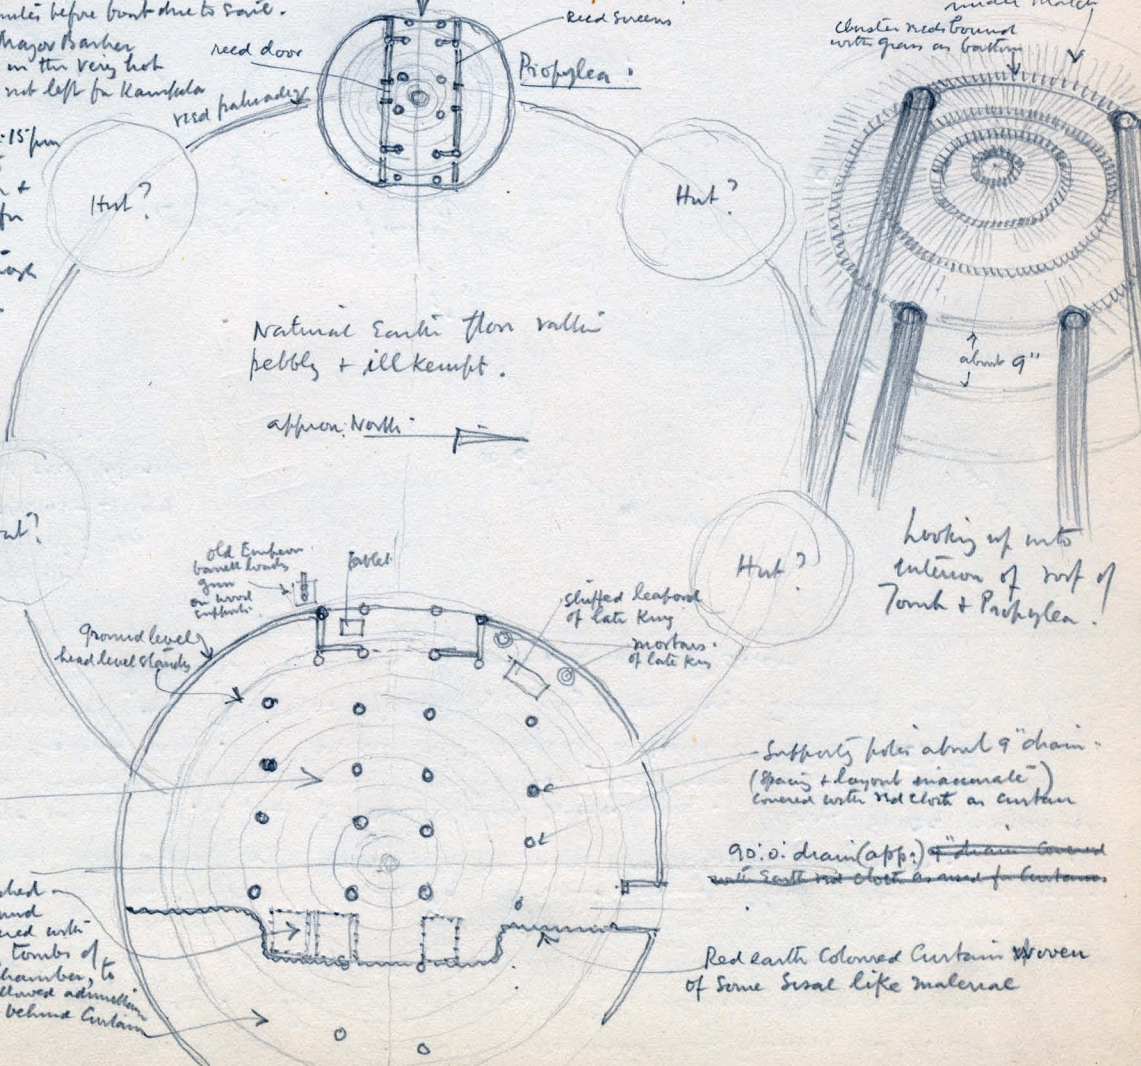 before boat due to sail.
Major Barker
in the very hot
not left for Kampala
:15pm
+
for
reed door
reed palisades
Reed Screens
Propylea.
reeds bound
with grass as batten
Hut?
Hut?
Natural Earth floor rather
pebbly + ill kempt.
approx: North
about 9"
Looking up into
interior of roof of
Tomb + Propylea.
Hut?
old
barrell
gun
on wood
supports.
Tablet
stuffed leapord
of late King
mortars
of late King
Ground level
head level
Supports poles about 9" diam.
(Spacing + layout inaccurate)
covered with red cloth as curtain
90:0: diam (app:) 4" diam Covered
with Earth red cloth as used for Curtains
Red earth Coloured Curtain Woven
of Some Sisal like material
with
tombs of
chamber, to
allowed admission
behind Curtain